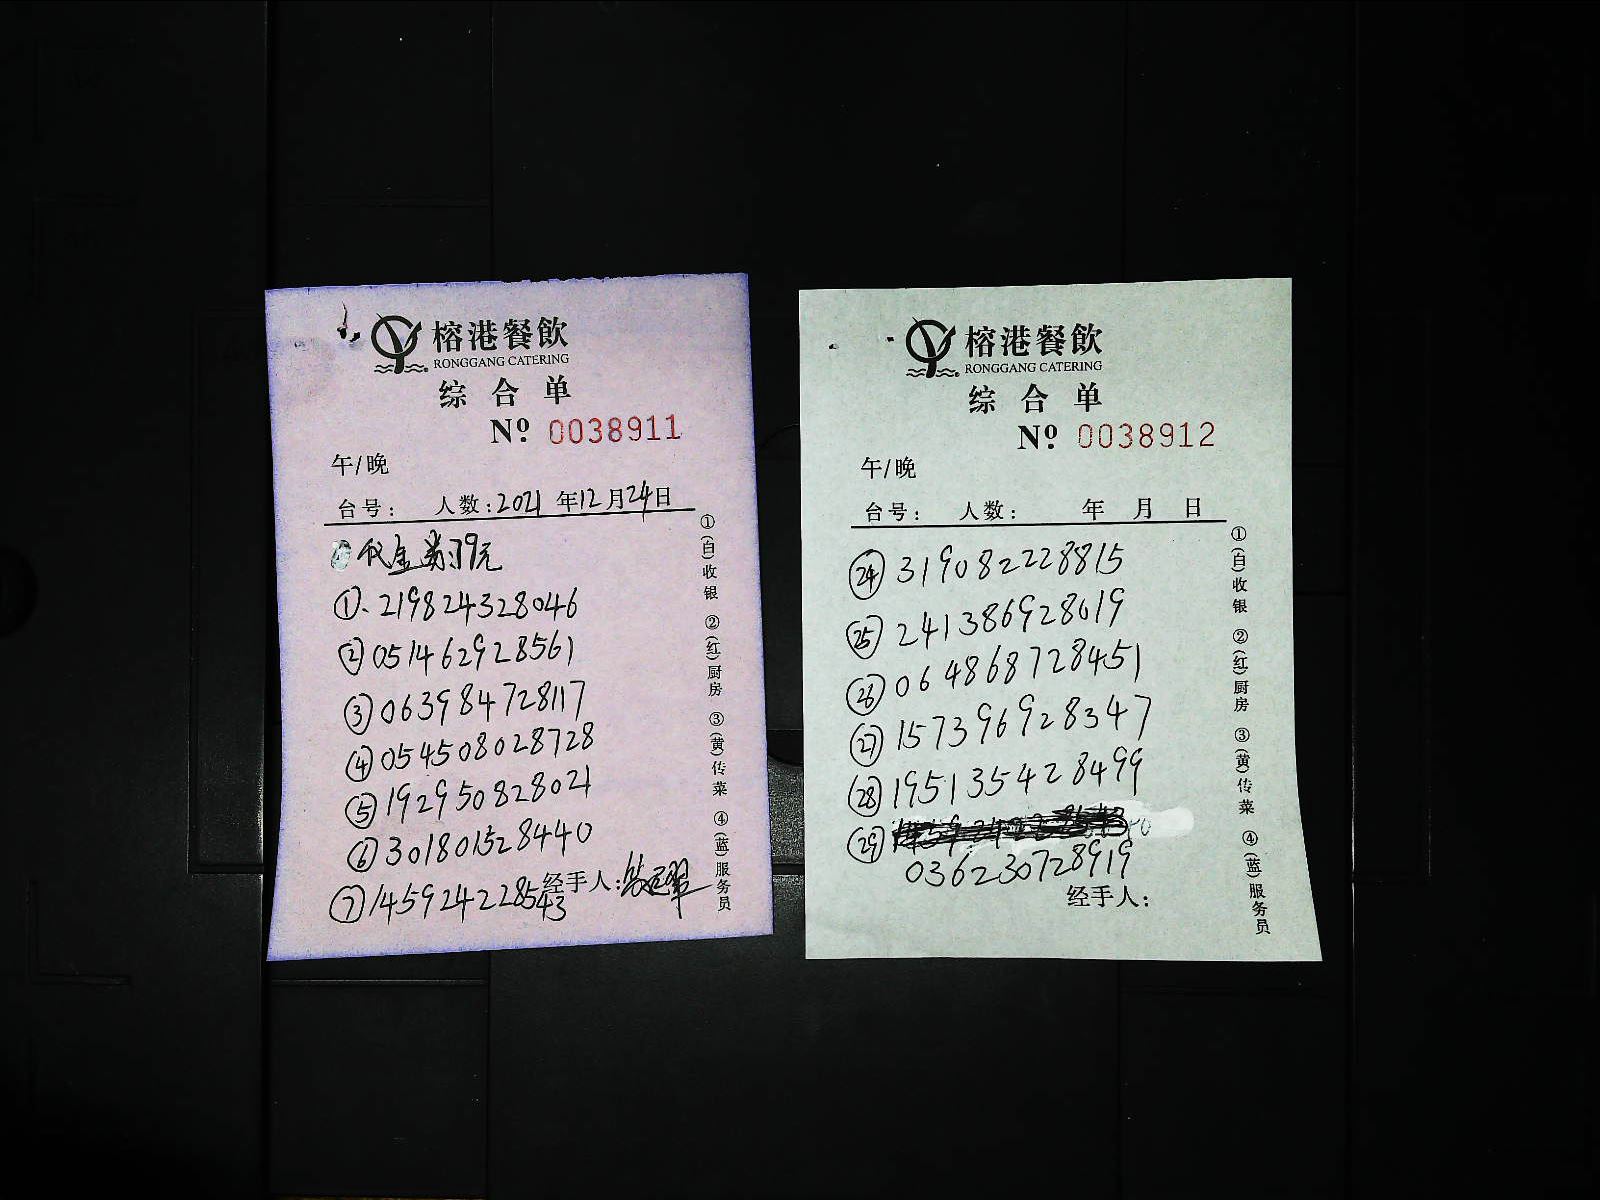 榕港餐飲
RONGGANG CATERING
综合单
Nº 0038911
午/晚
台号: 人数: 2021 年12月24日
代金券79元
①、219824328046
② 051462928561
③ 063984728117
④ 054508028728
⑤ 192950828021
⑥ 301801528440
经手人:
⑦ 145924228543
①(白)收银 ②(红)厨房 ③(黄)传菜 ④(蓝)服务员
榕港餐飲
RONGGANG CATERING
综合单
Nº 0038912
午/晚
台号: 人数: 年 月 日
㉔ 319082228815
㉕ 241386928019
㉖ 064868728451
㉗ 157396928347
㉘ 195135428499
㉙
036230728919
经手人:
①(白)收银 ②(红)厨房 ③(黄)传菜 ④(蓝)服务员